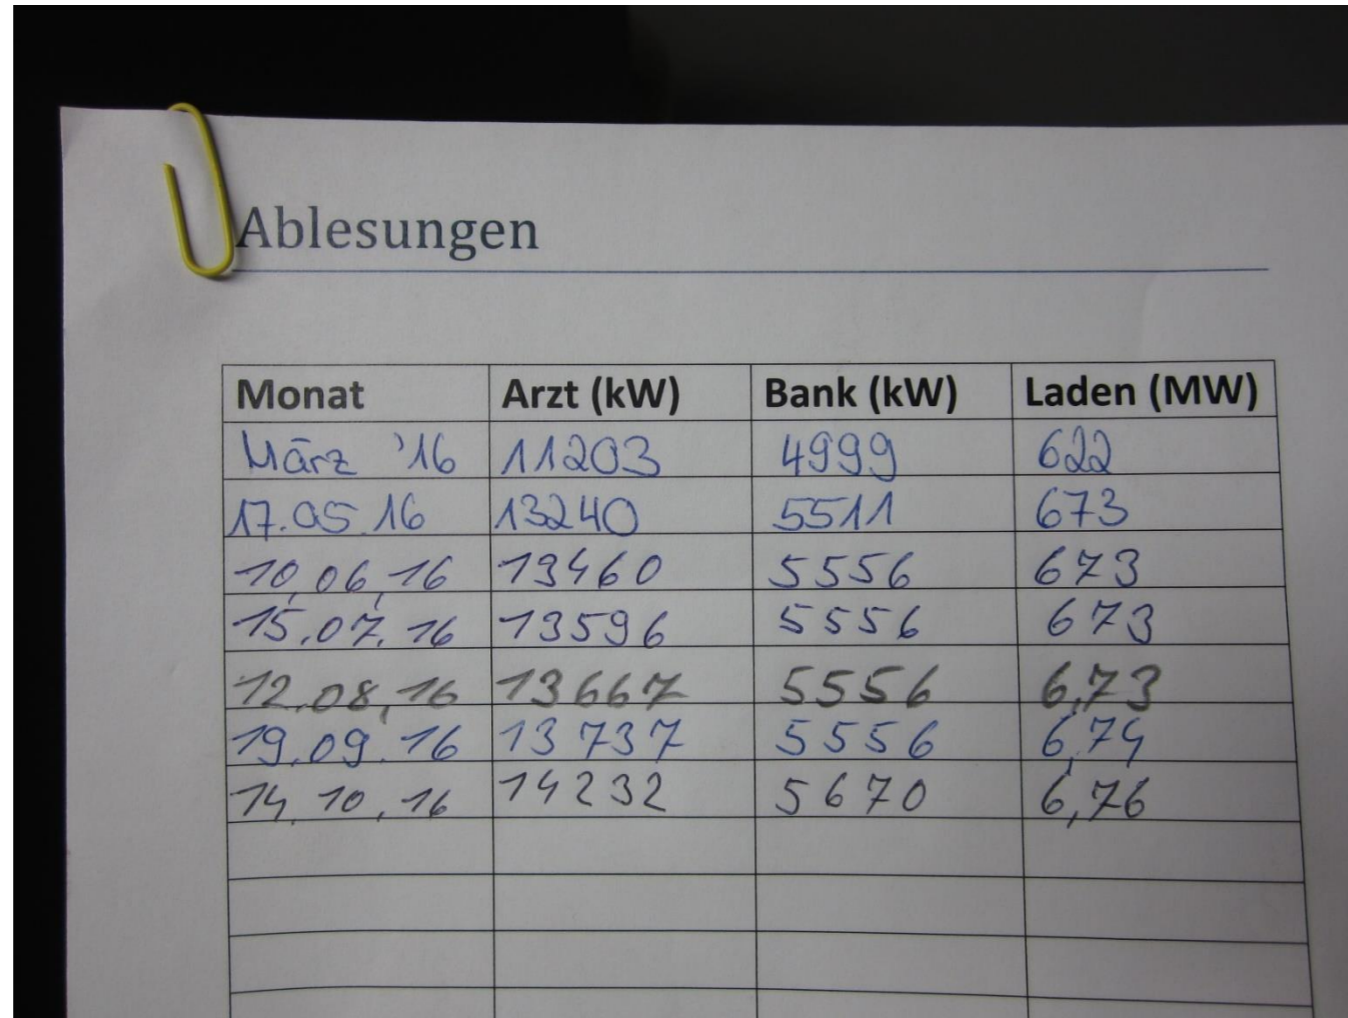 Ablesungen
Monat Arzt (kW) Bank (kW) Laden (MW)
März '16 11203 4999 622
17.05.16 13240 5511 673
10,06,16 13460 5556 673
15.07.16 13596 5556 673
12.08,16 13667 5556 6,73
19.09.16 13737 5556 6,74
14.10.16 14232 5670 6,76